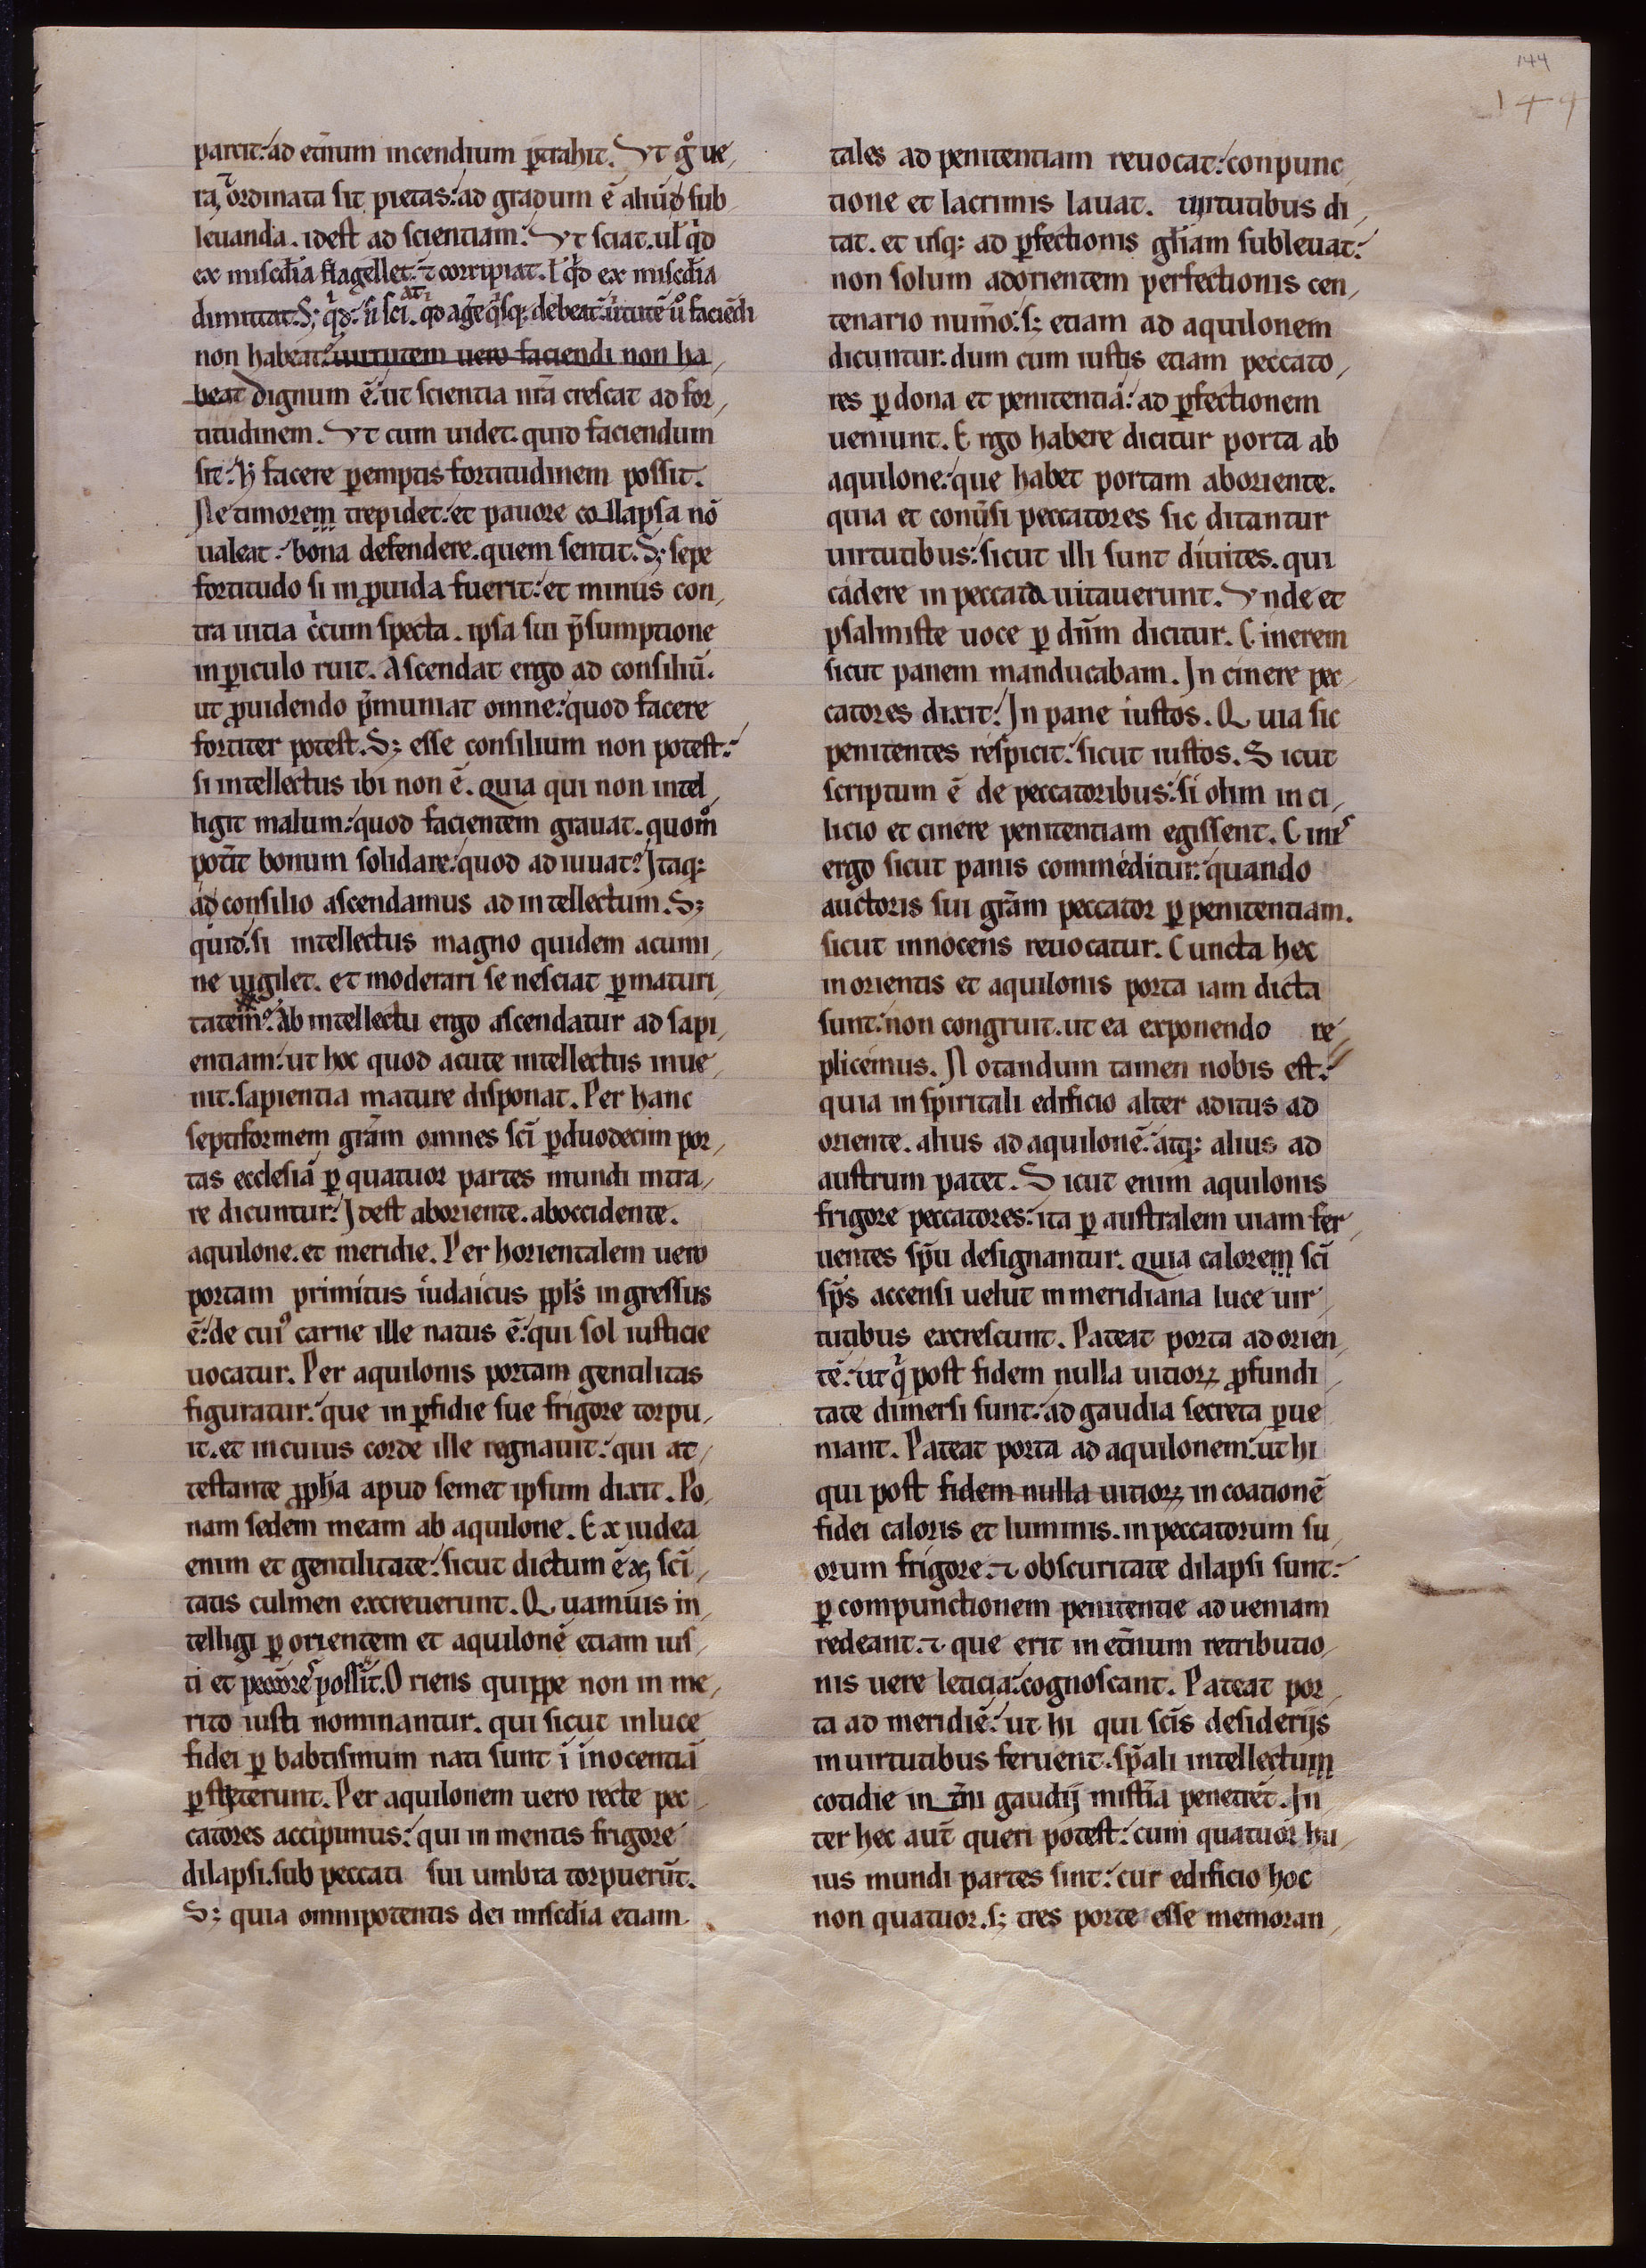 144
144
parcit: ad et̄num incendium ꝑtrahit. Vt gͦ ue,
ra, ⁊ ordinata sit pietas: ad gradum ē aliud sub
leuanda. idest ad scientiam: Vt sciat. ul̓ qͥd
ex misc̄dia flagellet: ⁊ corripiat. l̓ qͥd ex misc̄dia
dimittat. S; qͥd: si sciat. qd agere qͥsq; debeat: ũtutẽ ũo faciẽdi
non habeat: uirtutem uero faciendi non ha,
beat dignum ē: ut scientia nr̄a crescat ad for,
titudinem. Vt cum uidet. quid faciendum
sit: hͦ facere ꝑemptis fortitudinem possit.
Ne timorem trepidet: et pauore collapsa nō
ualeat: bona defendere. quem sentit. S; sepe
fortitudo si inꝓuida fuerit: et minus con,
tra uitia cͥcum specta. ipsa sui p̄sumptione
in ꝑiculo ruit. Ascendat ergo ad consiliū.
ut ꝓuidendo p̄muniat omne: quod facere
fortiter potest. S; esse consilium non potest:
si intellectus ibi non ē. Quia qui non intel,
ligit malum: quod facientem grauat. quomͦ
pot̄it bonum solidare: quod adiuuat? Itaq:
ad consilio ascendamus ad intellectum. S;
quid: si intellectus magno quidem acumi,
ne uigilet. et moderari se nesciat ꝑ maturi,
tatem? Ab intellectu ergo ascendatur ad sapi,
entiam: ut hoc quod acute intellectus inue,
nit. sapientia mature disponat. Per hanc
septiformem grām omnes sc̄i ꝑ duodecim por,
tas ecclesiā ꝑ quatuor partes mundi intra,
re dicuntur: Idest aboriente. aboccidente.
aquilone. et meridie. Per horientalem uero
portam primitus iudaicus ppl̓s ingressus
ē: de cuiꝰ carne ille natus ē: qui sol iusticie
uocatur. Per aquilonis portam gentilitas
figuratur: que in ꝑfidie sue frigore torpu,
it. et in cuius corde ille regnauit: qui at,
testante ꝓph̄a apud semet ipsum dixit. Po,
nam sedem meam ab aquilone. Ex iudea
enim et gentilitate: sicut dictum ē ex sc̄i,
tatis culmen excreuerunt. Quamuis in,
telligi ꝑ orientem et aquilonē etiam ius,
ti et pecc̄ore᷒ possīt. Oriens quippe non in me,
rito iusti nominantur. qui sicut inluce
fidei ꝑ babtismum nati sunt ī inocentiā
ꝑstiterunt. Per aquilonem uero recte pec,
catores accipimus: qui in mentis frigore
dilapsi. sub peccati sui umbra torpuerūt.
S; quia omnipotentis dei misc̄dia etiam
tales ad penitentiam reuocat: conpunc,
tione et lacrimis lauat. uirtutibus di,
tat. et usq: ad ꝑfectionis gl̓iam subleuat:
non solum adorientem perfectionis cen,
tenario num̄o: s; etiam ad aquilonem
dicuntur. dum cum iustis etiam peccato,
res ꝑ dona et penitentiā: ad ꝑfectionem
ueniunt. Ergo habere dicitur porta ab
aquilone: que habet portam aboriente.
quia et conũsi peccatores sic ditantur
uirtutibus: sicut illi sunt diuites. qui
cadere in peccata uitauerunt. Vnde et
psalmiste uoce ꝑ dn̄m dicitur. Cinerem
sicut panem manducabam. In cinere pec,
catores dixit: In pane iustos. Quia sic
penitentes respicit: sicut iustos. Sicut
scriptum ē de peccatoribus: si olim in ci,
licio et cinere penitentiam egissent. Cini᷒
ergo sicut panis commeditur: quando
auctoris sui grām peccator ꝑ penitentiam.
sicut innocens reuocatur. Cuncta hec
in orientis et aquilonis porta iam dicta
sunt: non congruit. ut ea exponendo re,
plicemus. Notandum tamen nobis est:
quia in spiritali edificio alter aditus ad
oriente. alius ad aquilonē: atq: alius ad
austrum patet. Sicut enim aquilonis
frigore peccatores: ita ꝑ australem uiam fer,
uentes sp̄u designantur. Quia calorem sc̄i
sp̄s accensi uelut in meridiana luce uir,
tutibus excrescunt. Pateat porta ad orien,
tē: ut qͥ post fidem nulla uitioꝝ ꝓfundi,
tate dimersi sunt: ad gaudia secreta ꝑue
niant. Pateat porta ad aquilonem: ut hi
qui post fidem nulla uitioꝝ incoationē
fidei caloris et luminis. in peccatorum su,
orum frigore. ⁊ obscuritate dilapsi sunt:
ꝑ compunctionem penitentie ad ueniam
redeant. ⁊ que erit in et̄num retributio,
nis uere leticia: cognoscant. Pateat por,
ta ad meridiē: ut hi qui sc̄is desiderijs
in uirtutibus feruent. sp̄ali intellectum
cotidie in t̄ni gaudij mist̄ia penetrēt. In,
ter hec aut̄ queri potest: cum quatuor hu,
ius mundi partes sint: cur edificio hoc
non quatuor. s; tres porte esse memoran,